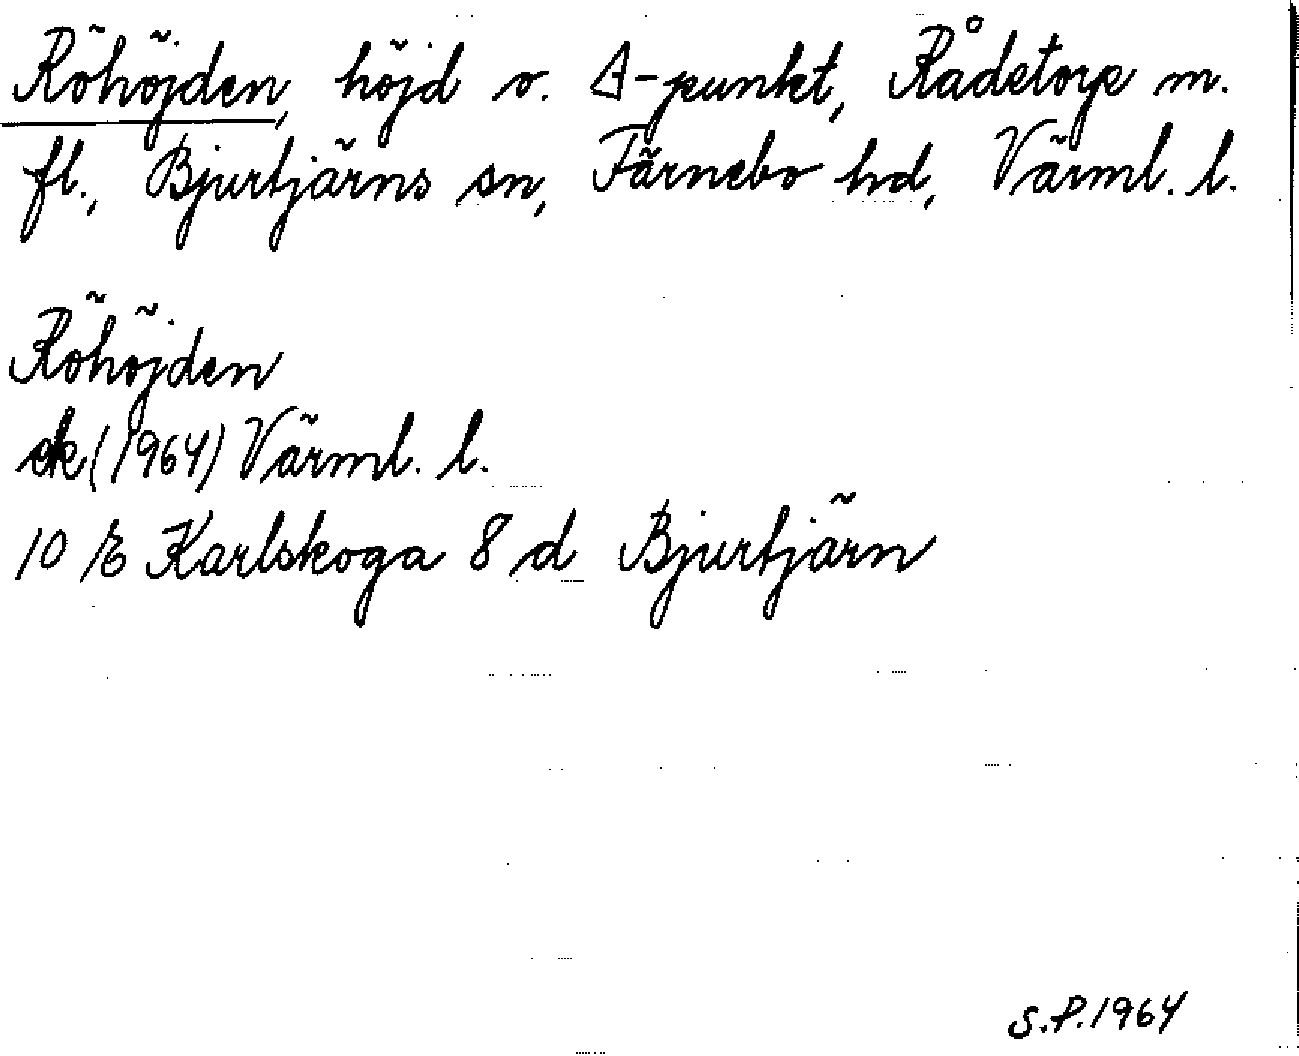 Röhöjden, höjd o. ∆-punkt, Rådetorp m.
fl., Bjurtjärns sn, Färnebo hd, Värml. l.
Röhöjden
ek (1964) Värml. l.
10 E Karlskoga 8 d Bjurtjärn
S.P. 1964